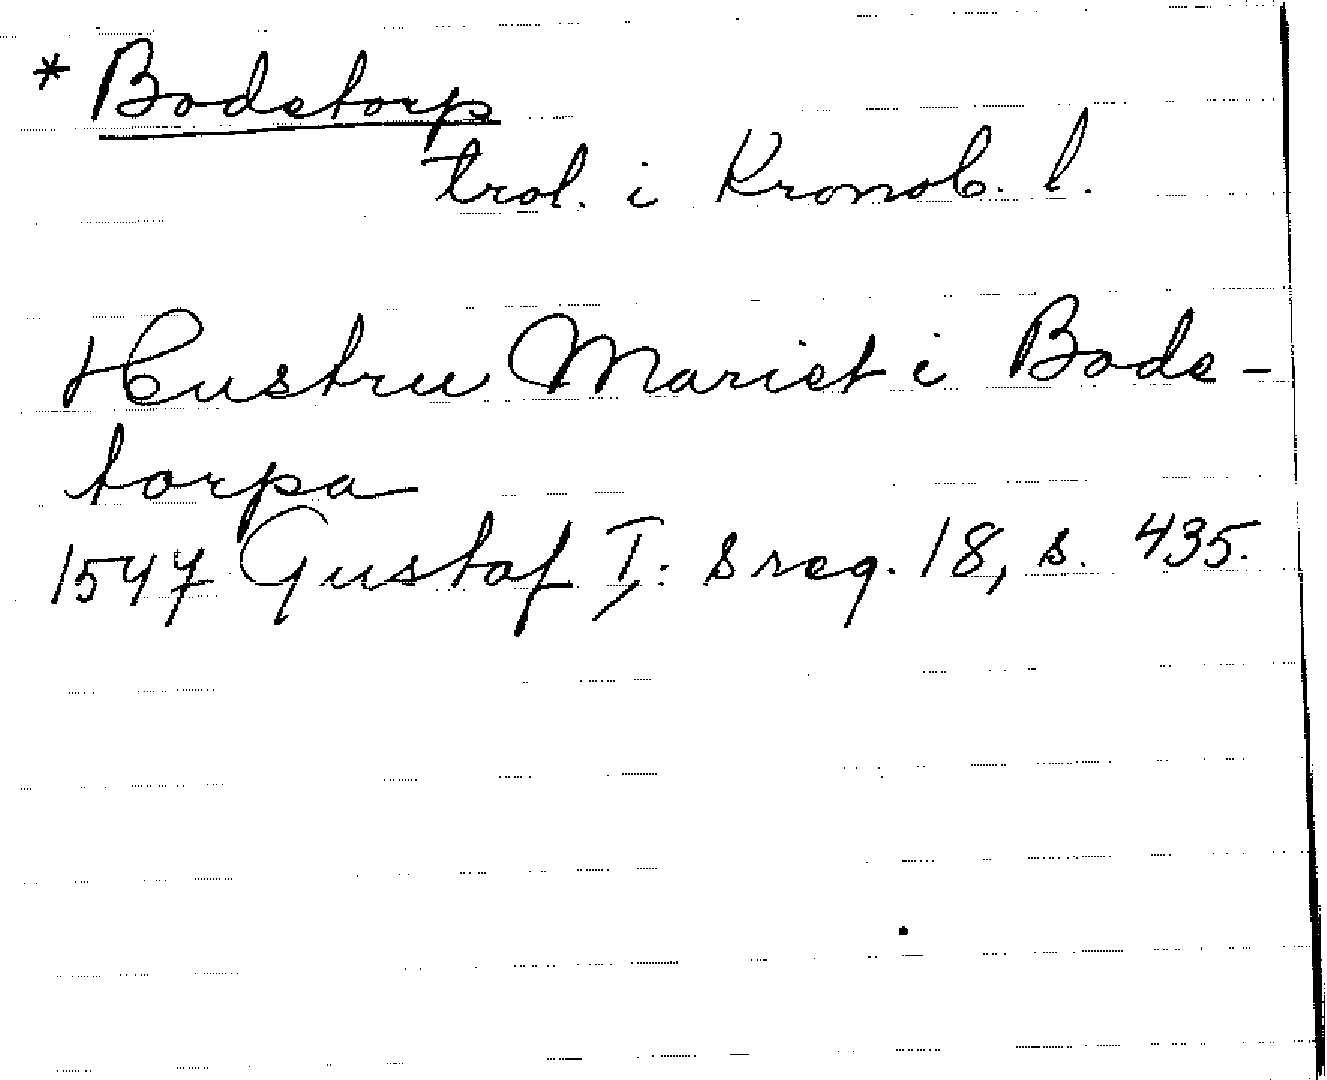 * Bodstorp
trol. i Kronob. l.
Hustru Marist i Bods-
torpa
1547 Gustaf I: s reg. 18, s. 435.